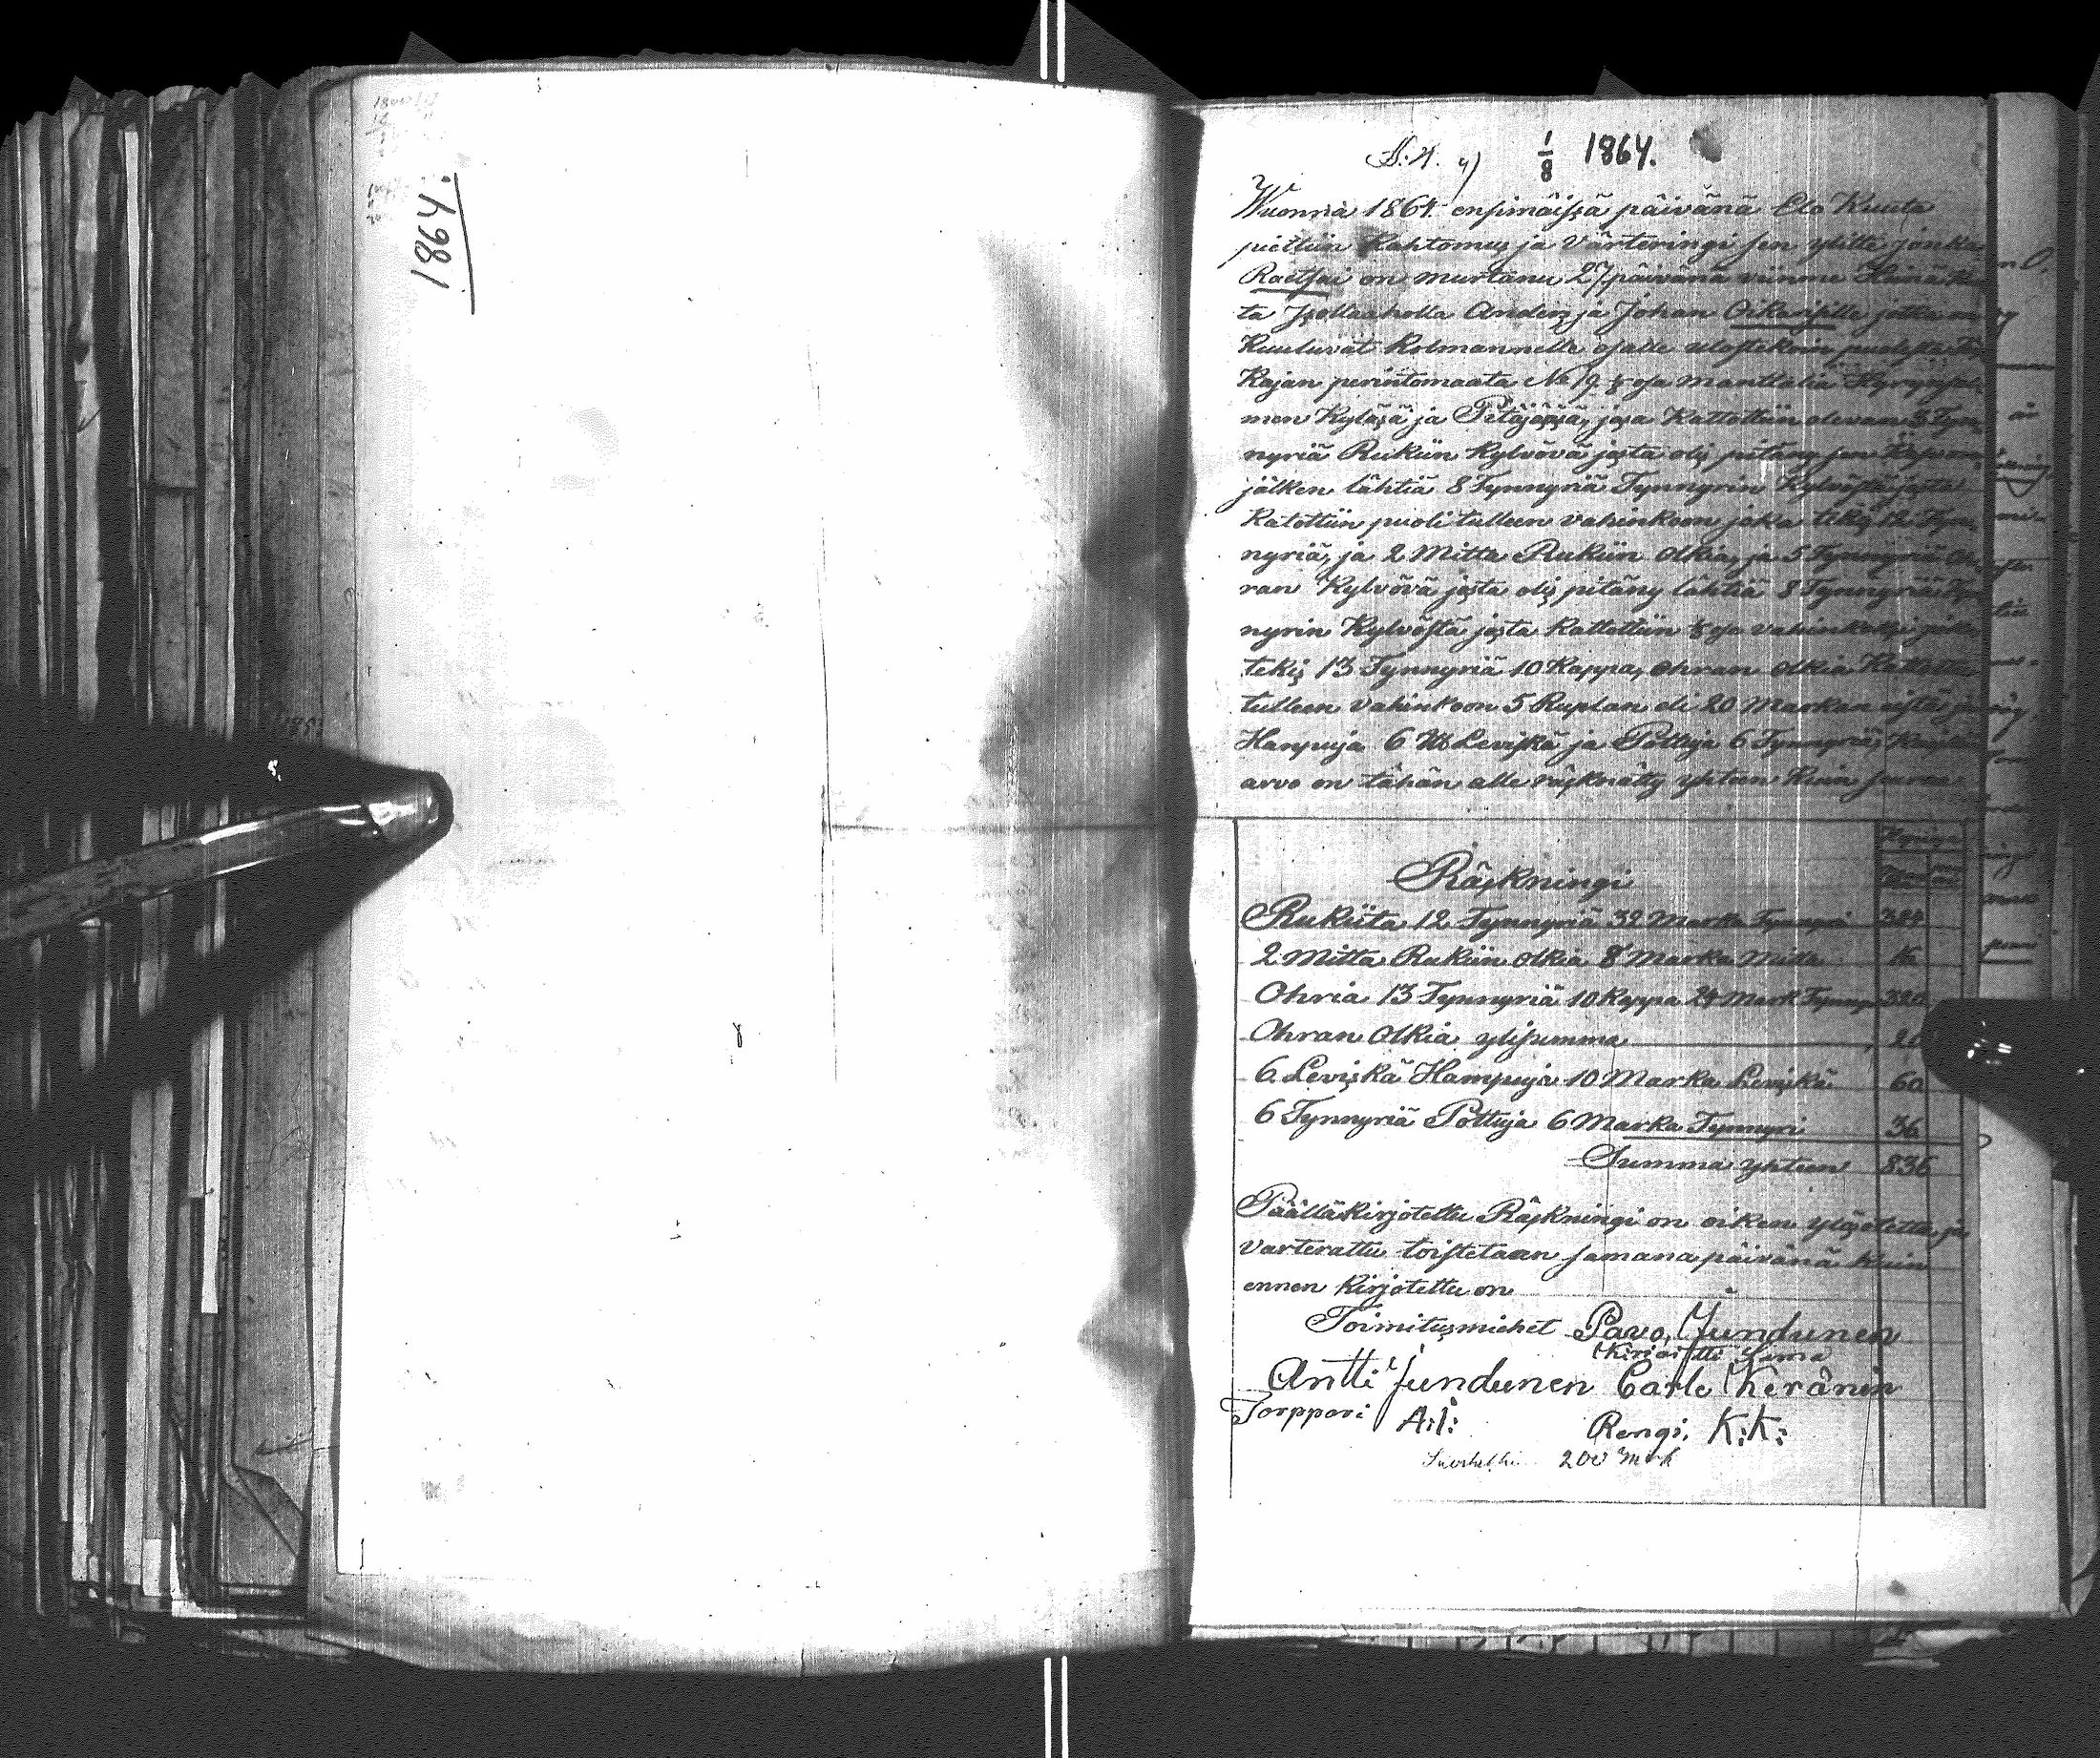 1864.
1/8 1864.
Wuonna 1864 ensimäissä päivänä Elo Kuuta
piettiin Kahtomus ja Värteringi sen ylitte jonka
Raetssi on murtanu 27 päivänä viimme Heinä Ku
ta Isollaaholla Anders ja Johan Oikarisille jotka
Kuuluvat Kolmannelle osalle ulostekoin puolesta
Kajan perintomaata No 19 osa manttalia Hyrynsal
men Kylässä ja Pitäjässä, jossa Katottiin olevan 3 Tyn
nyriä Rukiin Kylvövä josta olis pitäny sen
jälken lähtiä 8 Tynnyriä Tynnyrin Kylvöstä josta
Katottiin puoli tulleen vahinkoon joka tekis 12 Tyn
nyriä, ja 2 Mitta Rukiin Olkia, ja 5 Tynnyriä Oh
ran Kylvövä josta olis pitäny lähtiä 8 Tynnyriä Tyn
nyrin Kylvöstä josta Kattottiin 1/3 osa vahinkoksi
tekis 13 Tynnyriä 10 Kappa, Ohran Olkia Kattottu
tulleen vahinkoon 5 Ruplan eli 20 Markan eistä ja
Hampuja 6 Leviskä ja Pottuja 6 Tynnyriä,
arvo on tähän alle räsknätty yhteen Kuin seuraa
Räskningi
Rukiita 12 Tynnyriä 32 Marka Tynnyri 384
2 Mitta Rukiin Olkia 8 Marka Mitta 16
Ohria 13 Tynnyriä 10 Kappa 24 Mark Tynnyri 320
Ohran Olkia ylisumma 20
6 Leviskä Hampuja 10 Marka Leviskä 60
6 Tynnyriä Pottuja 6 Marka Tynnyri 36
Summa yhteen 836
Päälläkirjotettu Räskningi on oiken ylösotettu ja
varterattu toistetaan samana päivänä Kuin
ennen Kirjotettu on
Toimitusmiehet Pavo Jundunen
Antti Jundunen Carle Keränin
Torppari A:I: Rengi. K:K:
200 mrk